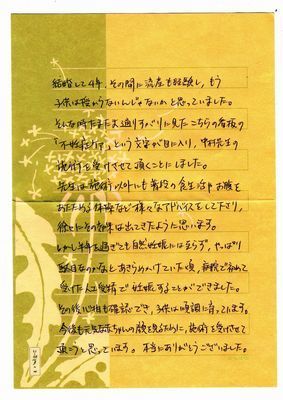 結婚して4年、その間に流産も経験し、もう
子供は授からないんじゃないかと思っていました。
そんな時たまたま通りすがりに見たこちらの看板の
「不妊症ケア」という文字が目に入り、中村先生の
施術を受けさせて頂くことにしました。
先生は施術以外にも普段の食生活やお腹を
あたためる体操など様々なアドバイスをして下さり、
徐々にその効果は出てきたように思います。
しかし半年を過ぎても自然妊娠には至らず、やっぱり
だめなのかなとあきらめかけていた頃、病院で初めて
受けた人工受精で妊娠することができました。
その後心拍も確認でき、子供は順調に育っています。
今後も元気な赤ちゃんの顔を見るために、施術を受けさせて
頂こうと思っています。本当にありがとうございました。